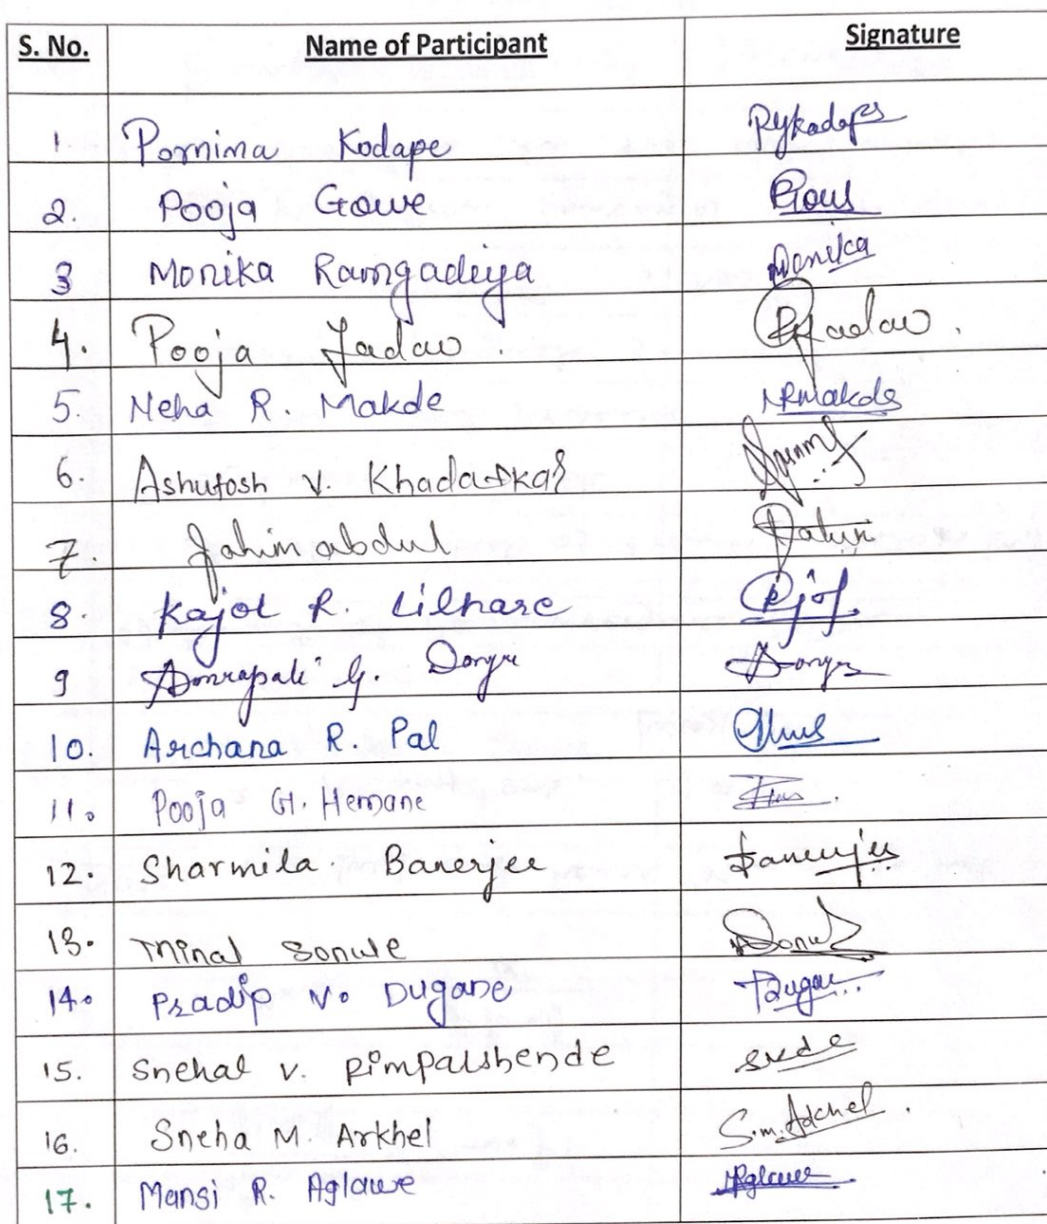 S. No. Name of Participant Signature
1. Pornima Kodape
2. Pooja Gowe
3 Monika Ramgadiya Monika
4. Pooja Jadav. PJadav.
5. Neha R. Makde NRMakde
6. Ashutosh V. Khadatkar
7. Jahim abdul
8. Kajol R. Lilhare
9 Amrapali G. Dongre Dongre
10. Archana R. Pal
11. Pooja G. Hemane
12. Sharmila Banerjee Banerjee
13. Minal Sonule
14. Pradip V. Dugane
15. Snehal V. Pimpalshende
16. Sneha M. Arkhel S.m. Arkhel.
17. Mansi R. Aglawe